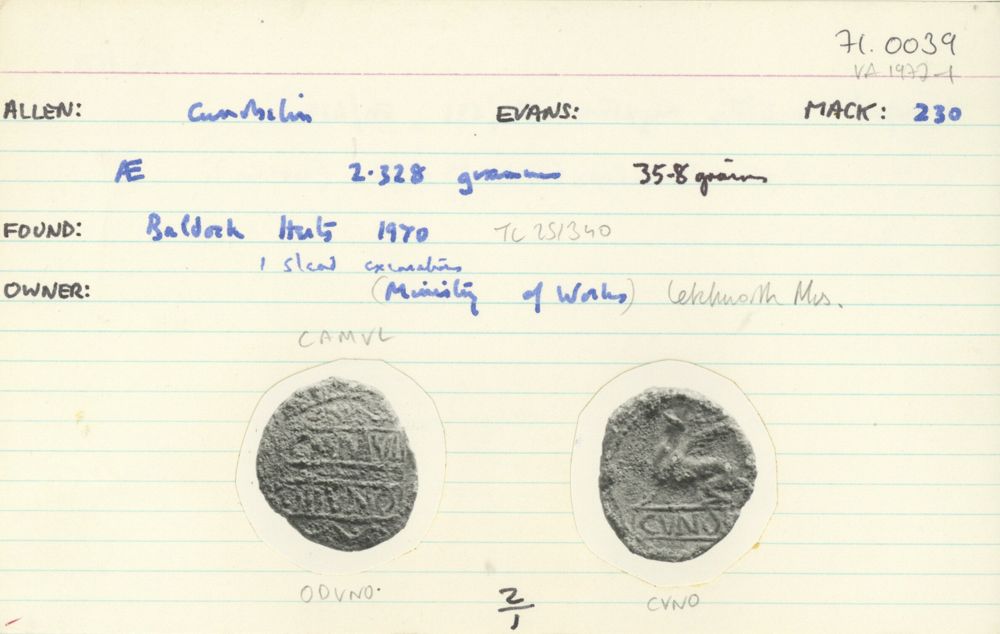 71.0039
VA 1977-1
ALLEN: Cunobelin EVANS: MACK: 230
Æ 2.328 grammes 35.8 grains
FOUND: Baldock Herts 1970 TL 251340
I Stead excavations
OWNER: (Ministry of Works) Letchworth Mus.
CAMVL
CVNO
ODVNO.
2/1
CVNO